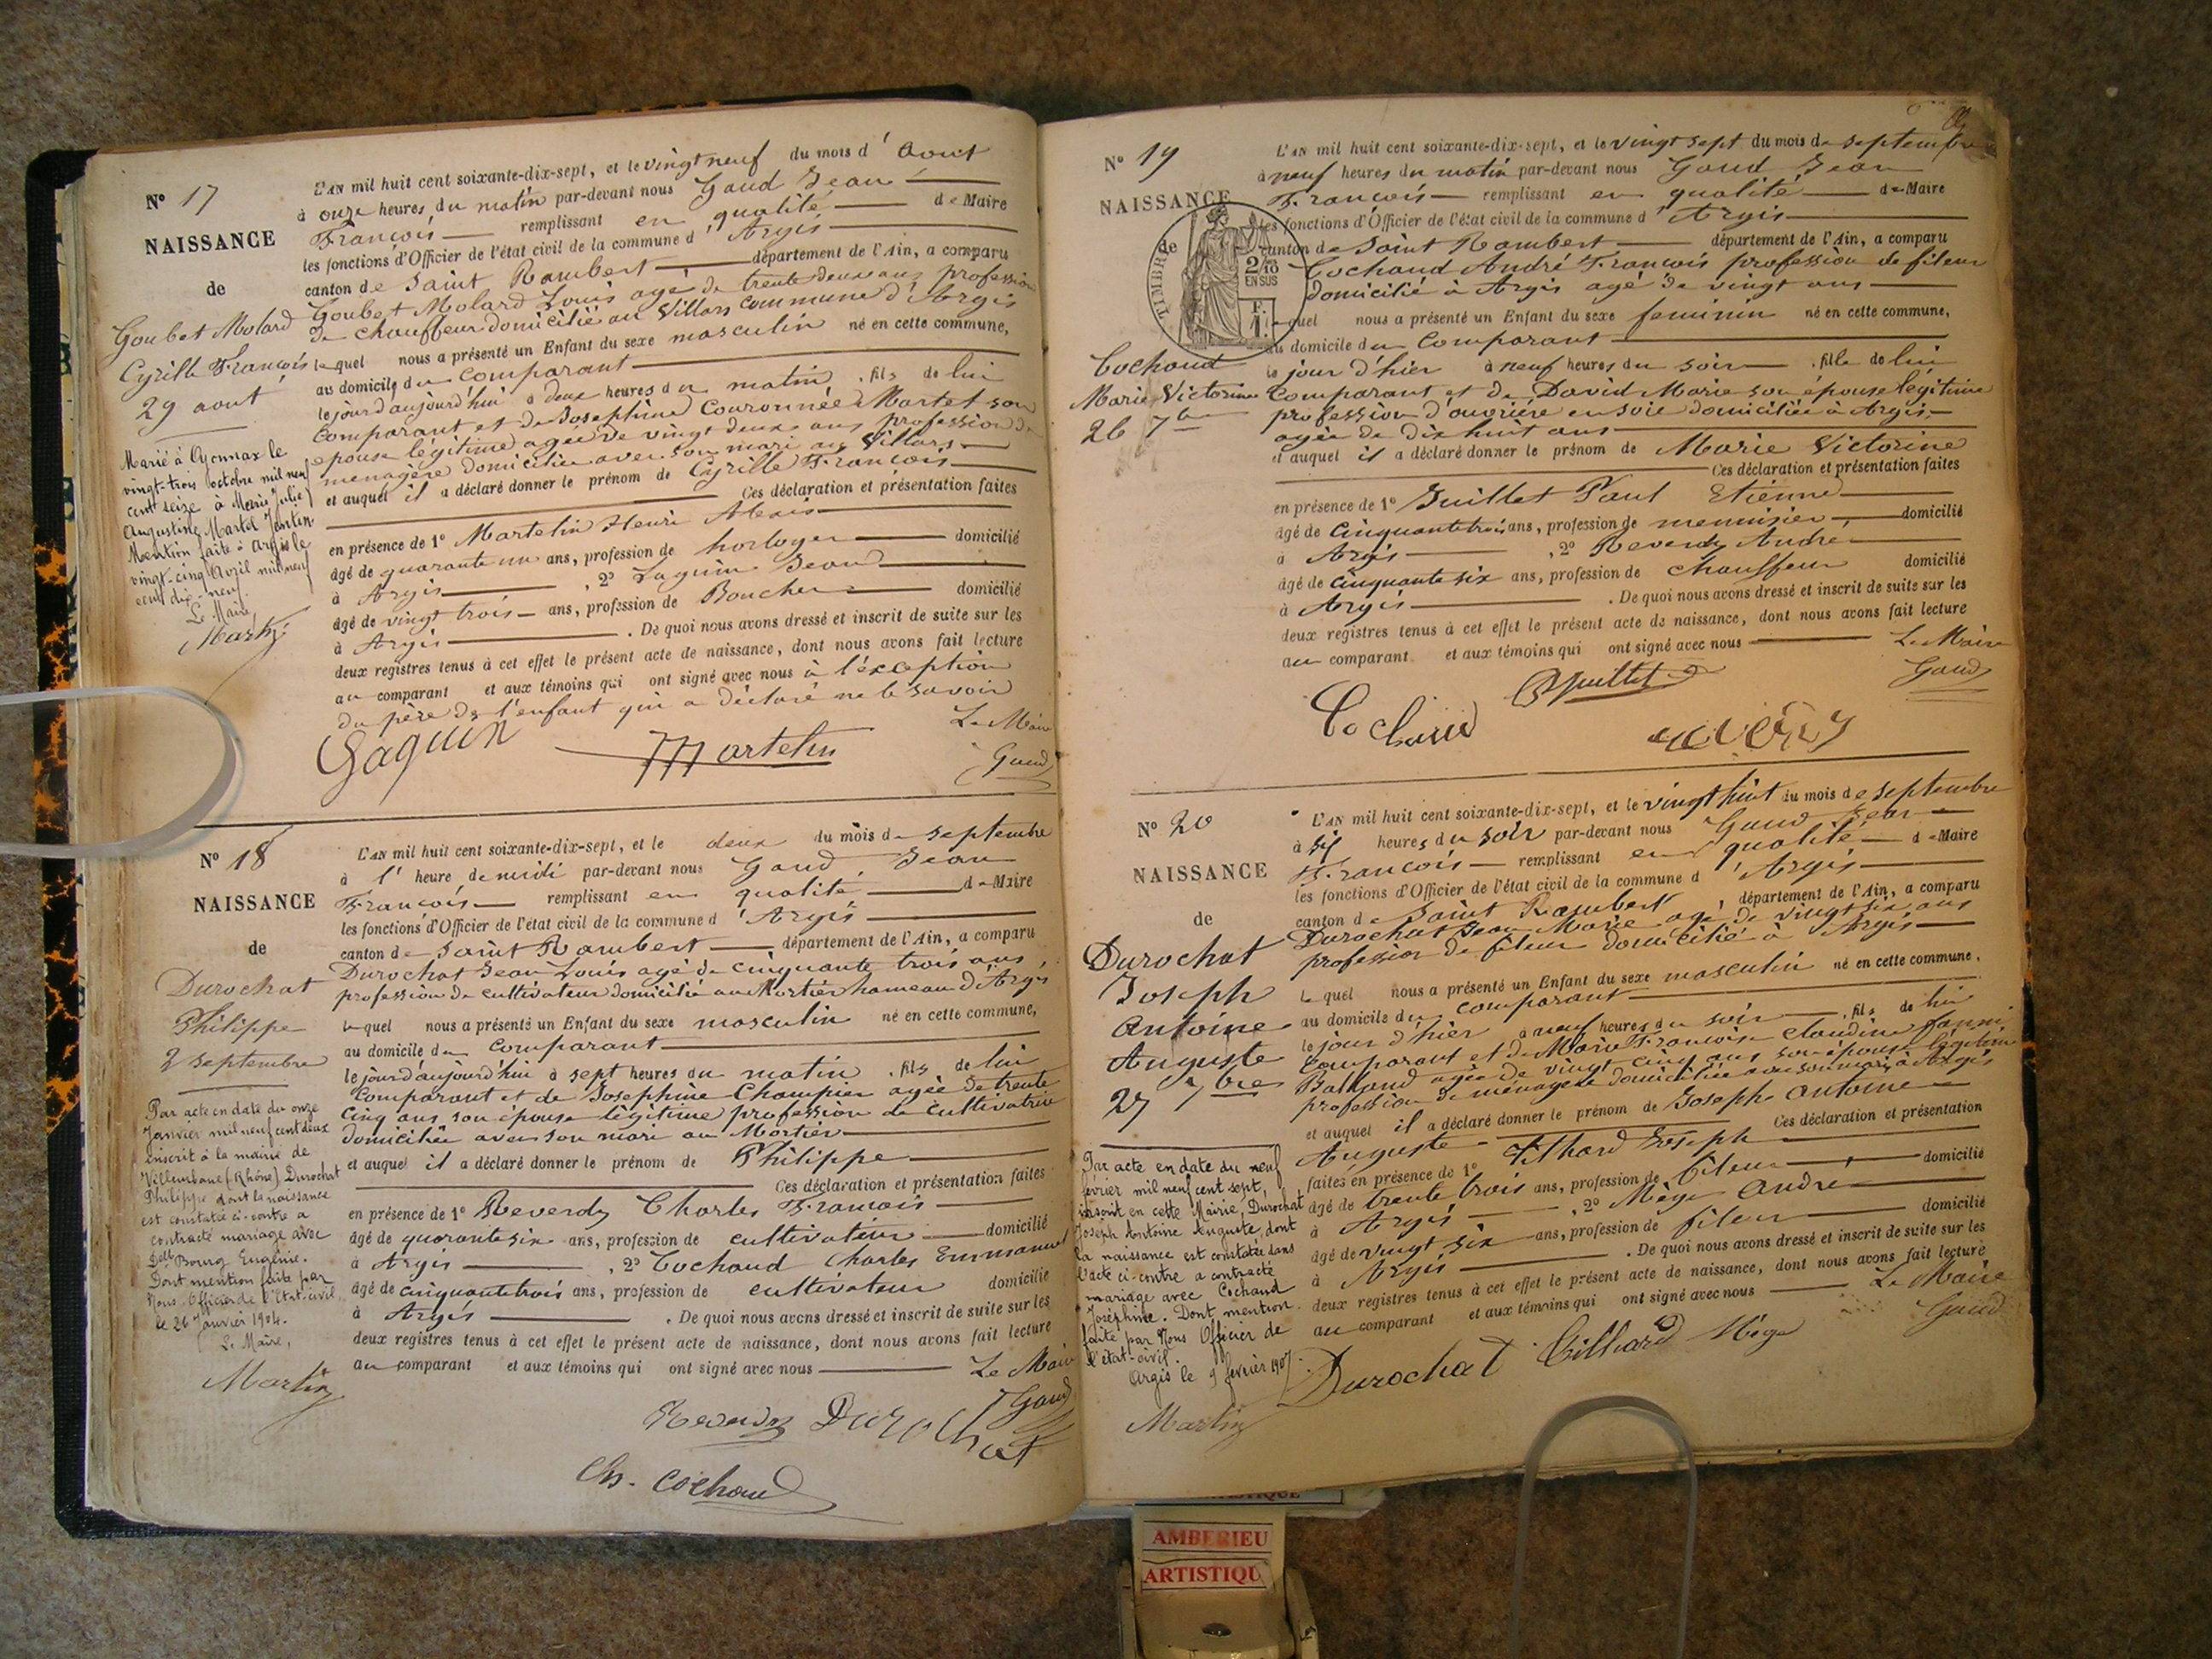 N° 17
NAISSANCE
de
Goubet Molard
Cyrille François
29 aout
Marié à Oyonnax le
vingt-trois octobre mil neuf
cent seize à Marie Julie
Augustine Martel
Mention faite à Argis le
vingt-cinq Avril mil neuf
cent dix-neuf.
Le Maire,
Martin
L'AN mil huit cent soixante-dix-sept, et le vingt neuf du mois d'Aout
à onze heures du matin par-devant nous Gaud Jean
François remplissant en qualité de Maire
les fonctions d'Officier de l'état civil de la commune d'Argis
canton de Saint Rambert département de l'Ain, a comparu
Goubet Molard Louis agé de trente deux ans profession
de chauffeur domicilié au Villars commune d'Argis
lequel nous a présenté un Enfant du sexe masculin né en cette commune,
au domicile du comparant
le jour d'aujourd'hui à deux heures du matin, fils de lui
comparant et de Josephine Couronnée Martet son
epouse légitime agée de vingt deux ans profession de
menagère domiciliée avec son mari au Villars
et auquel il a déclaré donner le prénom de Cyrille François
Ces déclaration et présentation faites
en présence de 1° Martelin Henri Alexis
âgé de quarante un ans, profession de horloger domicilié
à Argis, 2° Jean
âgé de vingt trois ans, profession de Boucher domicilié
à Argis. De quoi nous avons dressé et inscrit de suite sur les
deux registres tenus à cet effet le présent acte de naissance, dont nous avons fait lecture
au comparant et aux témoins qui ont signé avec nous à l'exception
du père de l'enfant qui a déclaré ne le savoir
Le Maire
Gaguin Martelin Gaud
N° 18
NAISSANCE
de
Durochat
Philippe
2 septembre
Par acte en date du onze
Janvier mil neuf cent deux
inscrit à la mairie de
Villeurbane (Rhône) Durochat
Philippe dont la naissance
est constatée ci-contre a
contracté mariage avec
Delle Bourg Eugénie.
Dont mention faite par
Nous Officier de l'Etat-civil
le 26 Janvier 1904.
Le Maire,
Martin
L'AN mil huit cent soixante-dix-sept, et le deux du mois de septembre
à l'heure de midi par-devant nous Gaud Jean
François remplissant en qualité de Maire
les fonctions d'Officier de l'état civil de la commune d'Argis
canton de Saint Rambert département de l'Ain, a comparu
Durochat Jean Louis agé de cinquante trois ans,
profession de cultivateur domicilié au Mortier hameau d'Argis
lequel nous a présenté un Enfant du sexe masculin né en cette commune,
au domicile du comparant
le jour d'aujourd'hui à sept heures du matin, fils de lui
comparant et de Josephine Champier agée de trente
cinq ans son épouse légitime profession de cultivatrice
domiciliée avec son mari au Mortier
et auquel il a déclaré donner le prénom de Philippe
Ces déclaration et présentation faites
en présence de 1° Reverdy Charles François
âgé de quarante six ans, profession de cultivateur domicilié
à Argis, 2° Cochaud Charles Emmanuel
âgé de cinquante trois ans, profession de cultivateur domicilié
à Argis. De quoi nous avons dressé et inscrit de suite sur les
deux registres tenus à cet effet le présent acte de naissance, dont nous avons fait lecture
au comparant et aux témoins qui ont signé avec nous Le Maire
Gaud
Reverdy Durochat
Ch. Cochaud
N° 19
NAISSANCE
de
TIMBRE
2/10
EN SUS
F.
1.
Cochaud
Marie Victorine
26 7bre
L'AN mil huit cent soixante-dix-sept, et le vingt sept du mois de septembre
à neuf heures du matin par-devant nous Gaud Jean
François remplissant en qualité de Maire
les fonctions d'Officier de l'état civil de la commune d'Argis
canton de Saint Rambert département de l'Ain, a comparu
Cochaud André François profession de fileur
domicilié à Argis agé de vingt ans
lequel nous a présenté un Enfant du sexe feminin né en cette commune,
au domicile du comparant
le jour d'hier à neuf heures du soir, fille de lui
comparant et de David Marie son épouse légitime
profession d'ouvrière en soie domiciliée à Argis,
agée de dix huit ans
et auquel il a déclaré donner le prénom de Marie Victorine
Ces déclaration et présentation faites
en présence de 1° Juillet Paul Etienne
âgé de cinquante trois ans, profession de menuisier domicilié
à Argis, 2° Reverdy André
âgé de cinquante six ans, profession de chauffeur domicilié
à Argis. De quoi nous avons dressé et inscrit de suite sur les
deux registres tenus à cet effet le présent acte de naissance, dont nous avons fait lecture
au comparant et aux témoins qui ont signé avec nous Le Maire
Juillet Gaud
Cochaud
N° 20
NAISSANCE
de
Durochat
Joseph
Antoine
Auguste
27 7bre
Par acte en date du neuf
février mil neuf cent sept,
inscrit en cette Mairie, Durochat
Joseph Antoine Auguste, dont
la naissance est constatée dans
l'acte ci-contre a contracté
mariage avec Cochaud
Joséphine. Dont mention
faite par Nous Officier de
l'état-civil.
Argis le 9 février 1907.
Martin
L'AN mil huit cent soixante-dix-sept, et le vingt huit du mois de septembre
à six heures du soir par-devant nous Gaud Jean
François remplissant en qualité de Maire
les fonctions d'Officier de l'état civil de la commune d'Argis
canton de Saint Rambert, département de l'Ain, a comparu
Durochat Jean Marie agé de vingt six ans
profession de fileur domicilié à Argis
lequel nous a présenté un Enfant du sexe masculin né en cette commune,
au domicile du comparant
le jour d'hier à neuf heures du soir, fils de lui
comparant et de Marie Françoise Claudine Fanni
agée de vingt cinq ans son épouse légitime
profession de ménagère domiciliée avec son mari à Argis
et auquel il a déclaré donner le prénom de Joseph Antoine
Auguste Ces déclaration et présentation
faites en présence de 1° Joseph
âgé de trente trois ans, profession de fileur domicilié
à Argis, 2° Mège André
âgé de vingt six ans, profession de fileur domicilié
à Argis. De quoi nous avons dressé et inscrit de suite sur les
deux registres tenus à cet effet le présent acte de naissance, dont nous avons fait lecture
au comparant et aux témoins qui ont signé avec nous Le Maire
Gaud
Durochat Mège
AMBERIEU
ARTISTIQU